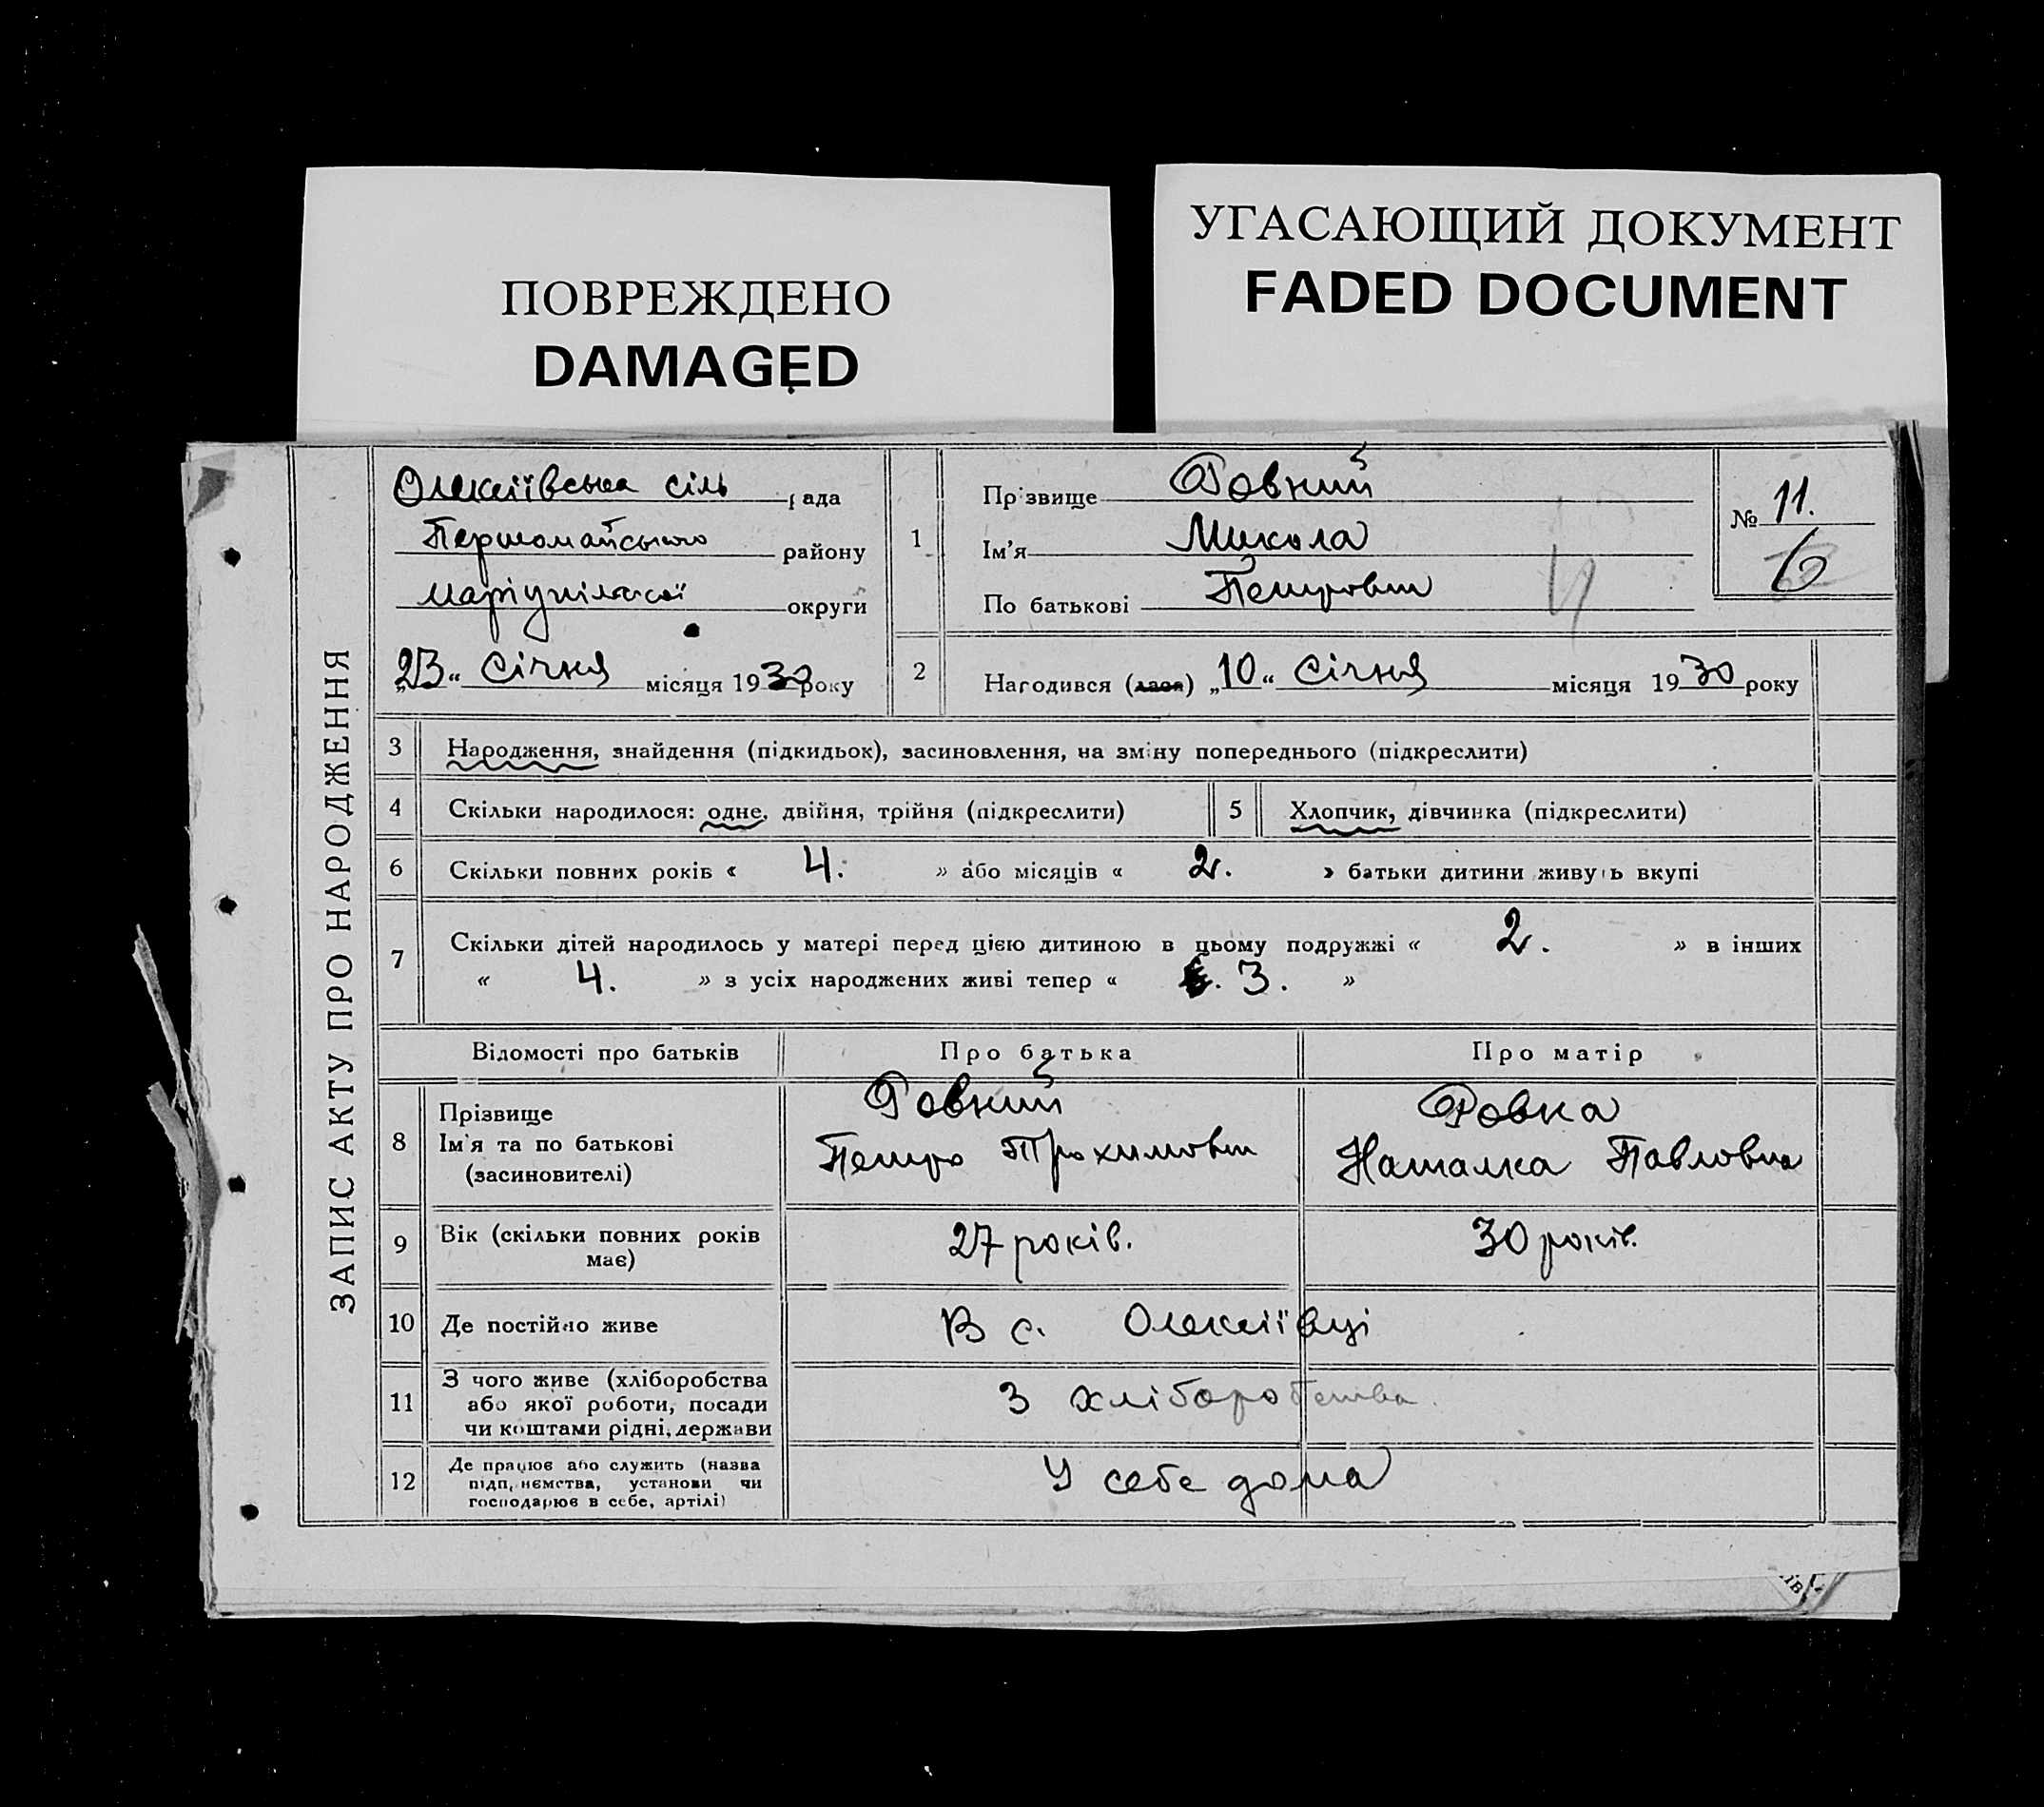 ПОВРЕЖДЕНО
DAMAGED
УГАСАЮЩИЙ ДОКУМЕНТ
FADED DOCUMENT
ЗАПИС АКТУ ПРО НАРОДЖЕННЯ
Олексіївська сіль рада
Першомайського району
Маріупільської округи
„23“ Січня місяця 1930 року
1
Прізвище Ровний
Ім'я Микола
По батькові Петрович
№ 11.
6
2
Народився (лася) „10“ Січня місяця 1930 року
3 Народження, знайдення (підкидьок), засиновлення, на зміну попереднього (підкреслити)
4 Скільки народилося: одне, двійня, трійня (підкреслити)
5 Хлопчик, дівчинка (підкреслити)
6 Скільки повних років « 4. » або місяців « 2. » батьки дитини живуть вкупі
7 Скільки дітей народилось у матері перед цією дитиною в цьому подружжі « 2. » в інших
« 4. » з усіх народжених живі тепер « 3. »
Відомості про батьків Про батька Про матір
8
Прізвище
Ім'я та по батькові
(засиновителі)
Ровний
Петро Трохимович
Ровна
Наталка Павловна
9
Вік (скільки повних років
має)
27 років.
30 років.
10 Де постійно живе
В с. Олексіївці
11
З чого живе (хліборобства
або якої роботи, посади
чи коштами рідні, держави
З хліборобства.
12
Де працює або служить (назва
підприємства, установи чи
господарює в себе, артілі)
У себе дома